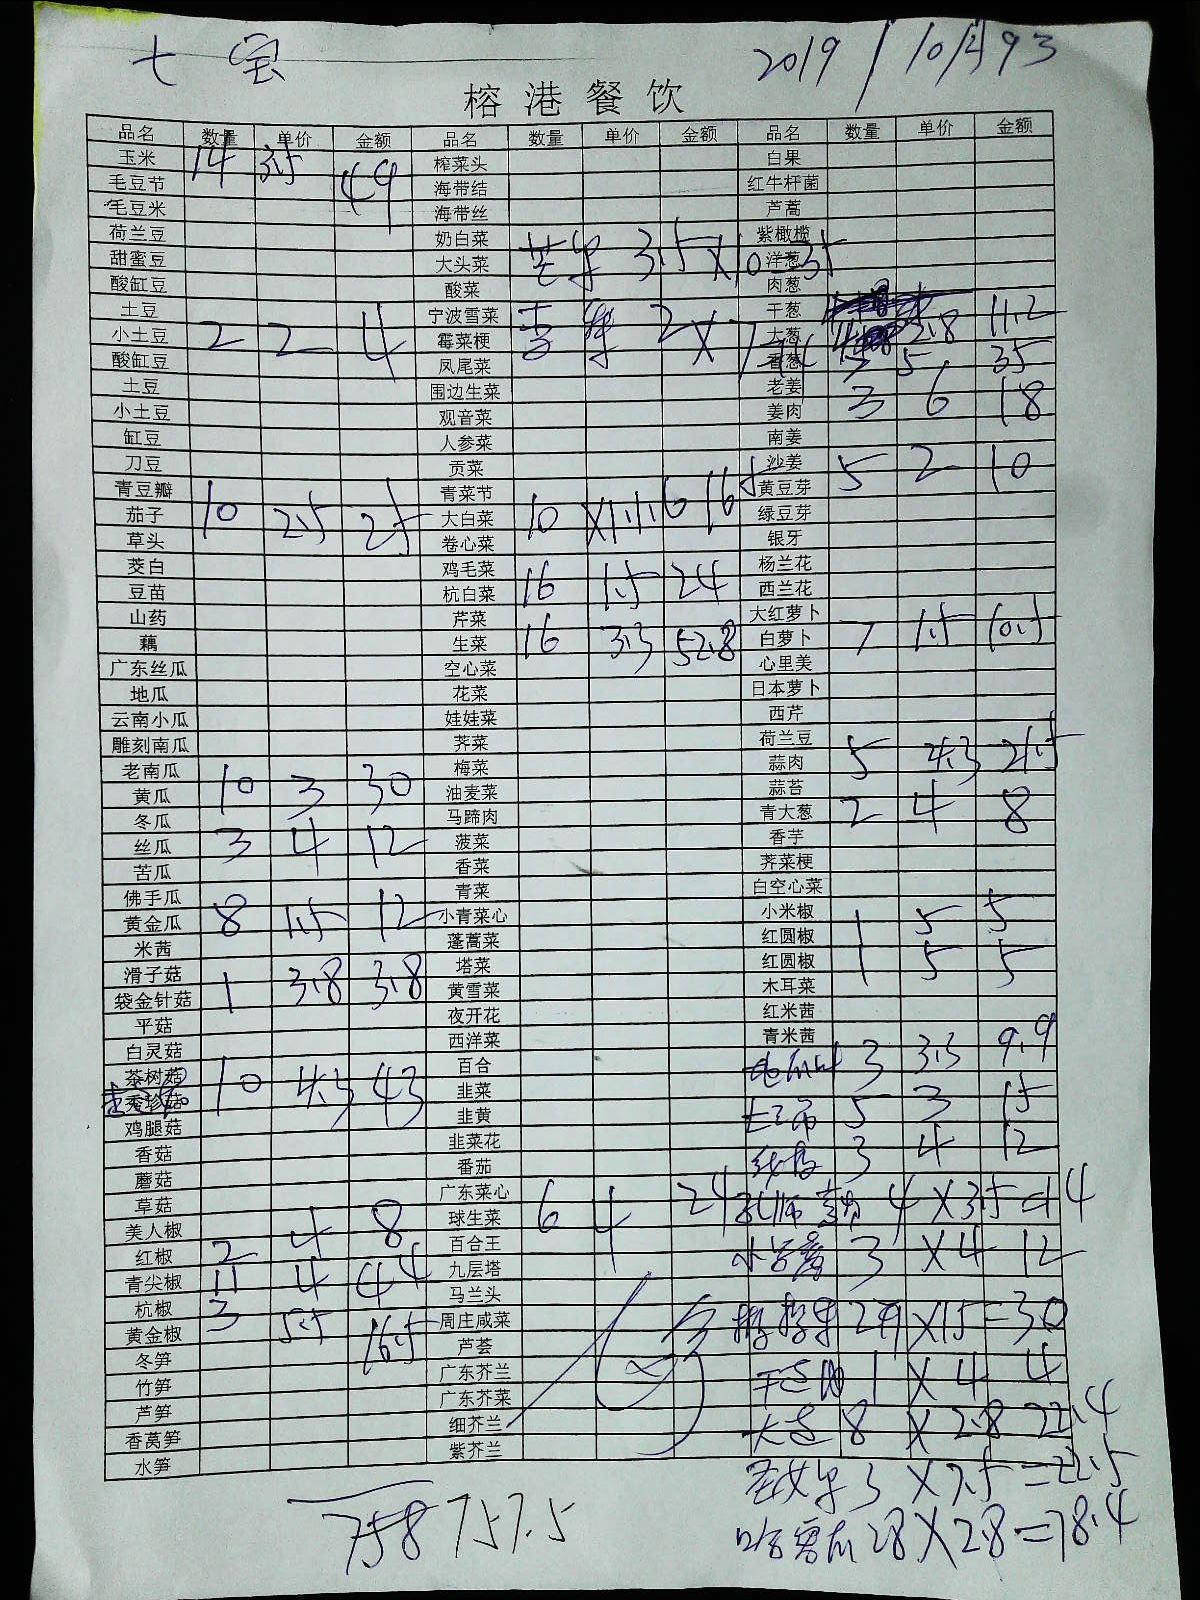 七宝
2019/10/
榕港餐饮
品名 数量 单价 金额 品名 数量 单价 金额 品名 数量 单价 金额
玉米 14 3.5 49 榨菜头 白果
毛豆节 海带结 红牛杆菌
毛豆米 海带丝 芦蒿
荷兰豆 奶白菜 紫橄榄
甜蜜豆 大头菜 芒果 3.5×10=35 洋葱
酸缸豆 酸菜 肉葱
土豆 宁波雪菜 干葱 11.2
小土豆 2 2 4 霉菜梗 2×7=14 大葱 2.8
酸缸豆 凤尾菜 香葱 5 35
土豆 围边生菜 老姜 3 6 18
小土豆 观音菜 姜肉
缸豆 人参菜 南姜
刀豆 贡菜 沙姜 5 2 10
青豆瓣 青菜节 黄豆芽
茄子 10 2.5 25 大白菜 10 绿豆芽
草头 卷心菜 银牙
茭白 鸡毛菜 杨兰花
豆苗 杭白菜 16 1.5 24 西兰花
山药 芹菜 大红萝卜
藕 生菜 16 3.3 52.8 白萝卜 7 1.5 10.5
广东丝瓜 空心菜 心里美
地瓜 花菜 日本萝卜
云南小瓜 娃娃菜 西芹
雕刻南瓜 荠菜 荷兰豆
老南瓜 梅菜 蒜肉 5 4.3 21.5
黄瓜 10 3 30 油麦菜 蒜苔
冬瓜 马蹄肉 青大葱 2 4 8
丝瓜 3 4 12 菠菜 香芋
苦瓜 香菜 荠菜梗
佛手瓜 青菜 白空心菜
黄金瓜 8 1.5 12 小青菜心 小米椒 1 5 5
米茜 蓬蒿菜 红圆椒
滑子菇 塔菜 红圆椒 1 5 5
袋金针菇 1 3.8 3.8 黄雪菜 木耳菜
平菇 夜开花 红米茜
白灵菇 西洋菜 青米茜
茶树菇 10 4.3 43 百合 3 3.3 9.9
秀珍菇 韭菜
鸡腿菇 韭黄 5 3 15
香菇 韭菜花
蘑菇 番茄 3 4 12
草菇 广东菜心
美人椒 4 8 球生菜 6 4 24 4×3.5=14
红椒 2 百合王 3×4 12
青尖椒 11 4 44 九层塔
杭椒 3 5.5 16.5 马兰头
黄金椒 周庄咸菜 ×15=30
冬笋 芦荟
竹笋 广东芥兰 1×4 4
芦笋 广东芥菜
香莴笋 细芥兰 大葱 8×2.8 22.4
水笋 紫芥兰
圣女果 3×7.5=22.5
哈密瓜 28×2.8=78.4
758 757.5